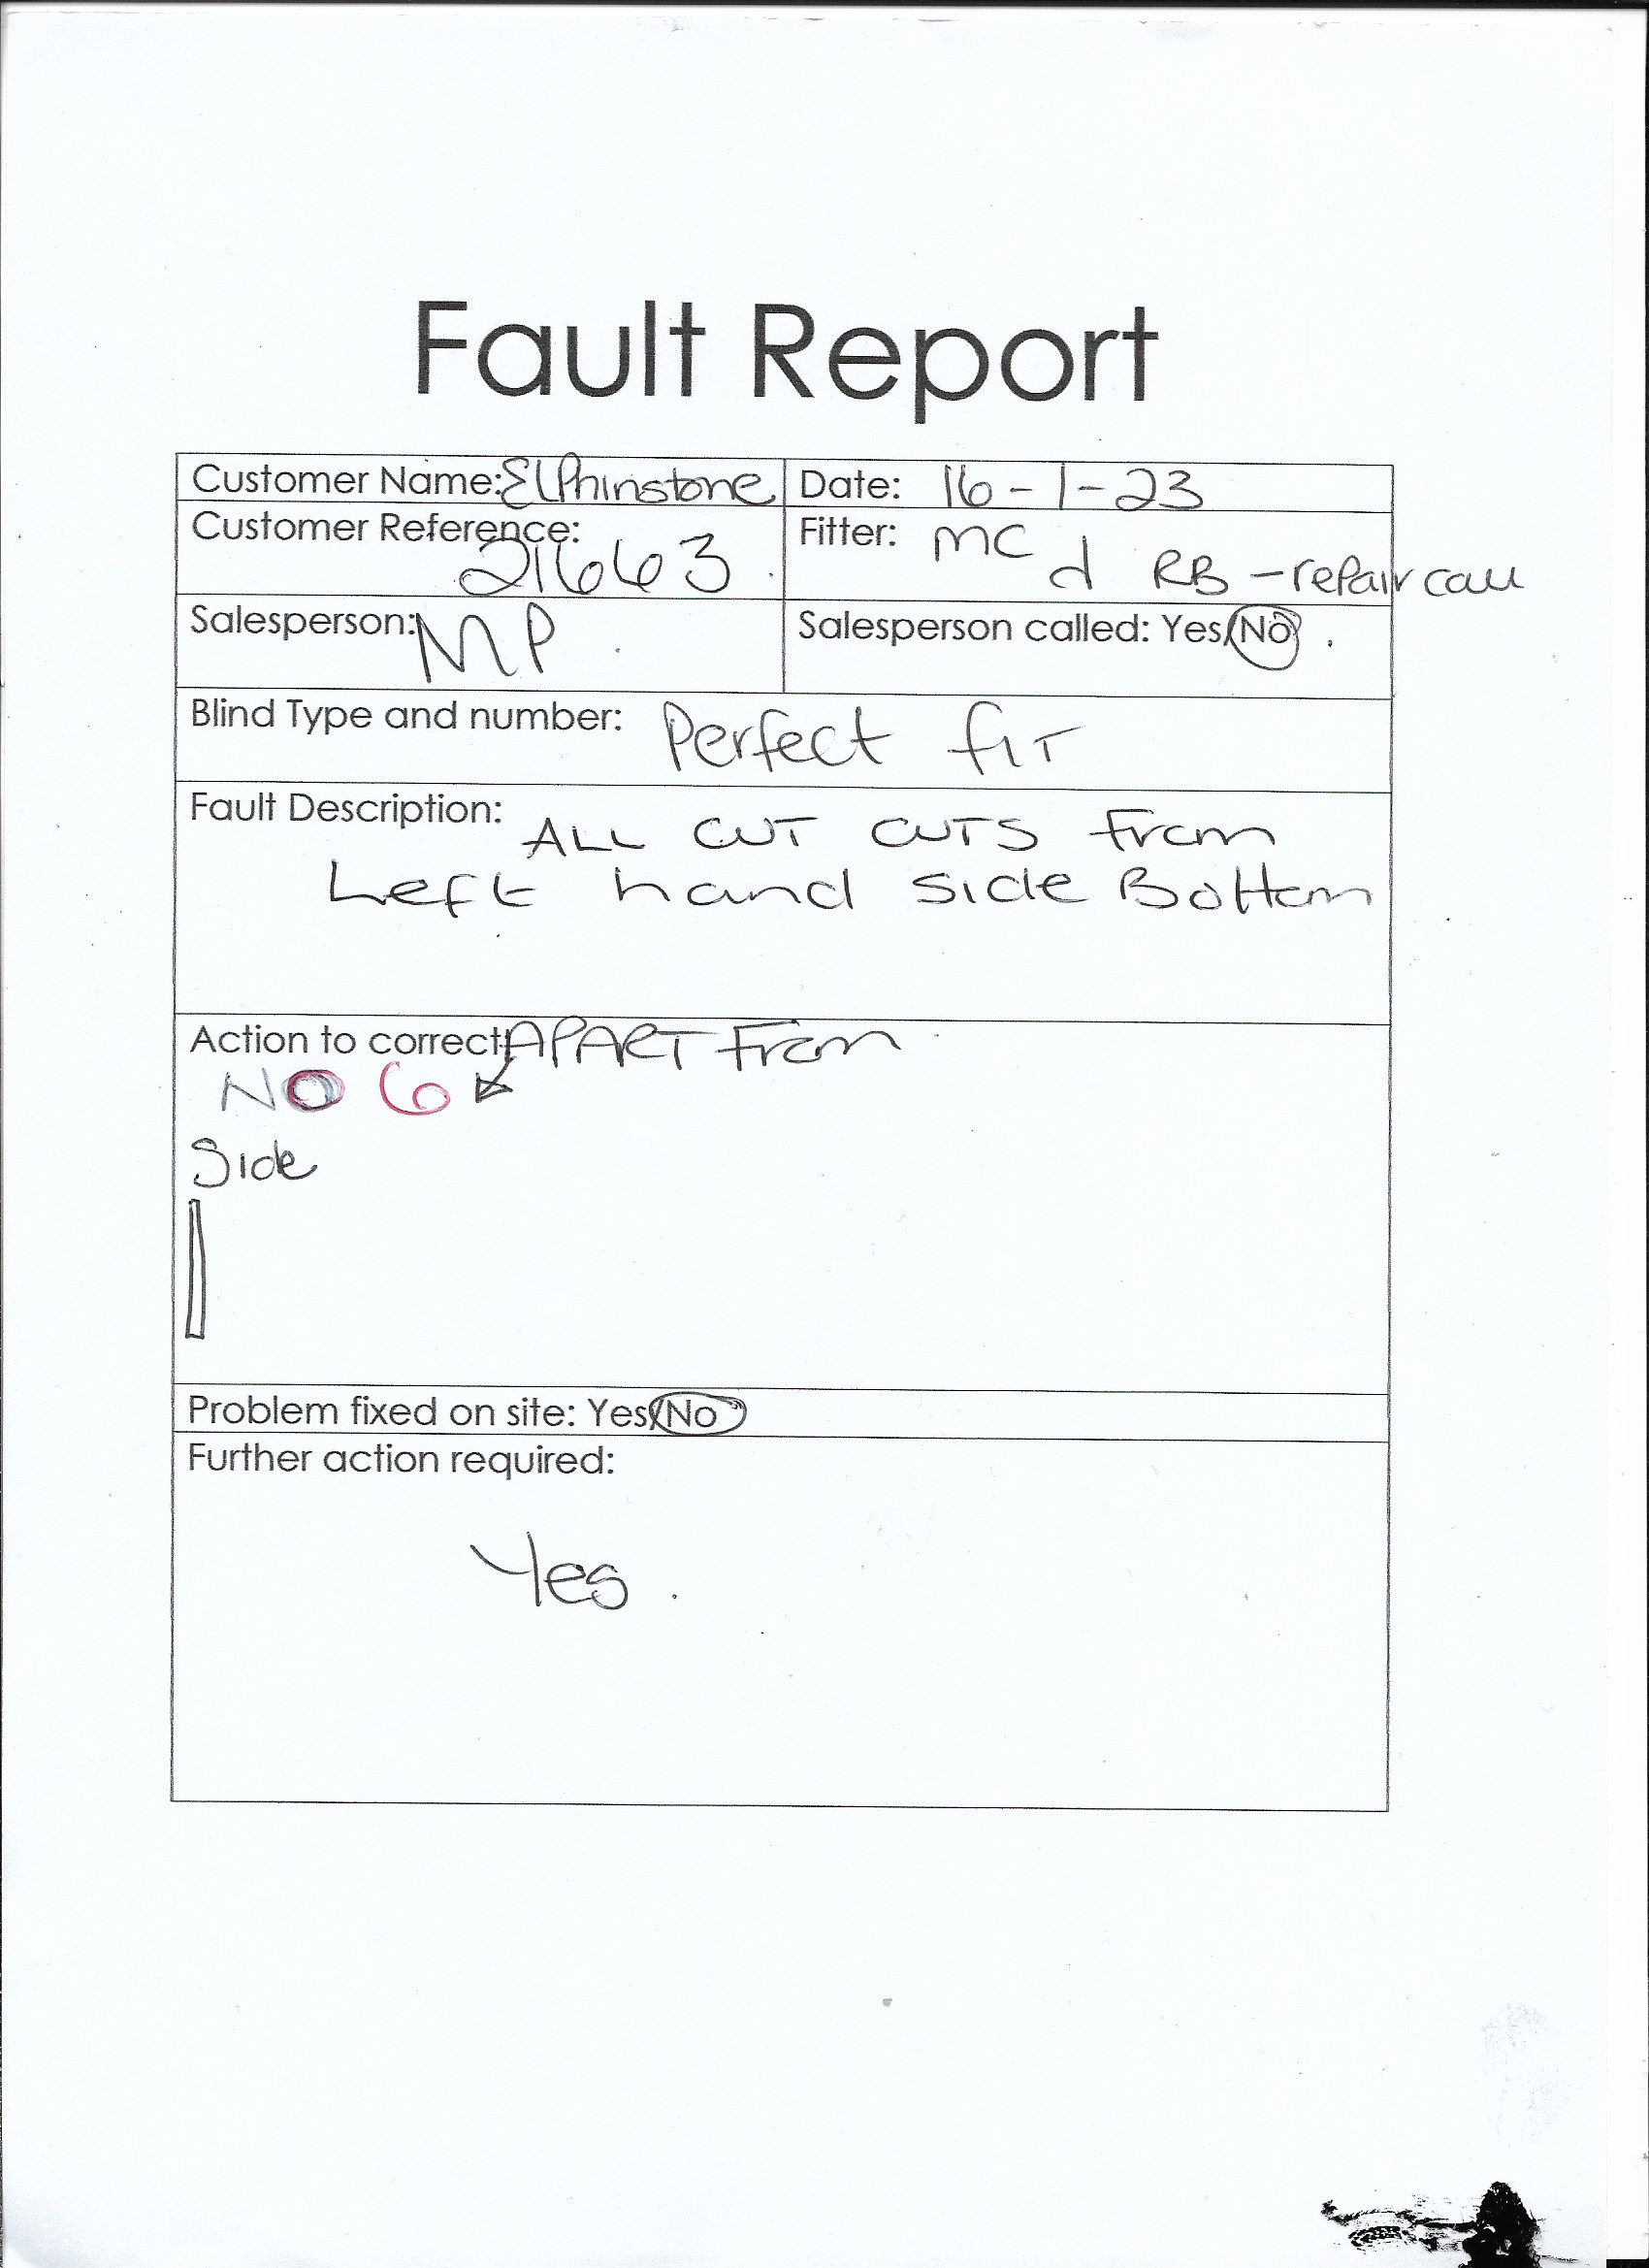 Fault Report
Customer Name: ElPhinstone
Date: 16-1-23
Customer Reference: 21663
Fitter: MC d RB - repair call
Salesperson: MP.
Salesperson called: Yes/No.
Blind Type and number: Perfect fIT
Fault Description: ALL CUT CUTS from
Left hand side Bottom
Action to correct: APART From
NO 6
Side
Problem fixed on site: Yes/No
Further action required:
Yes.